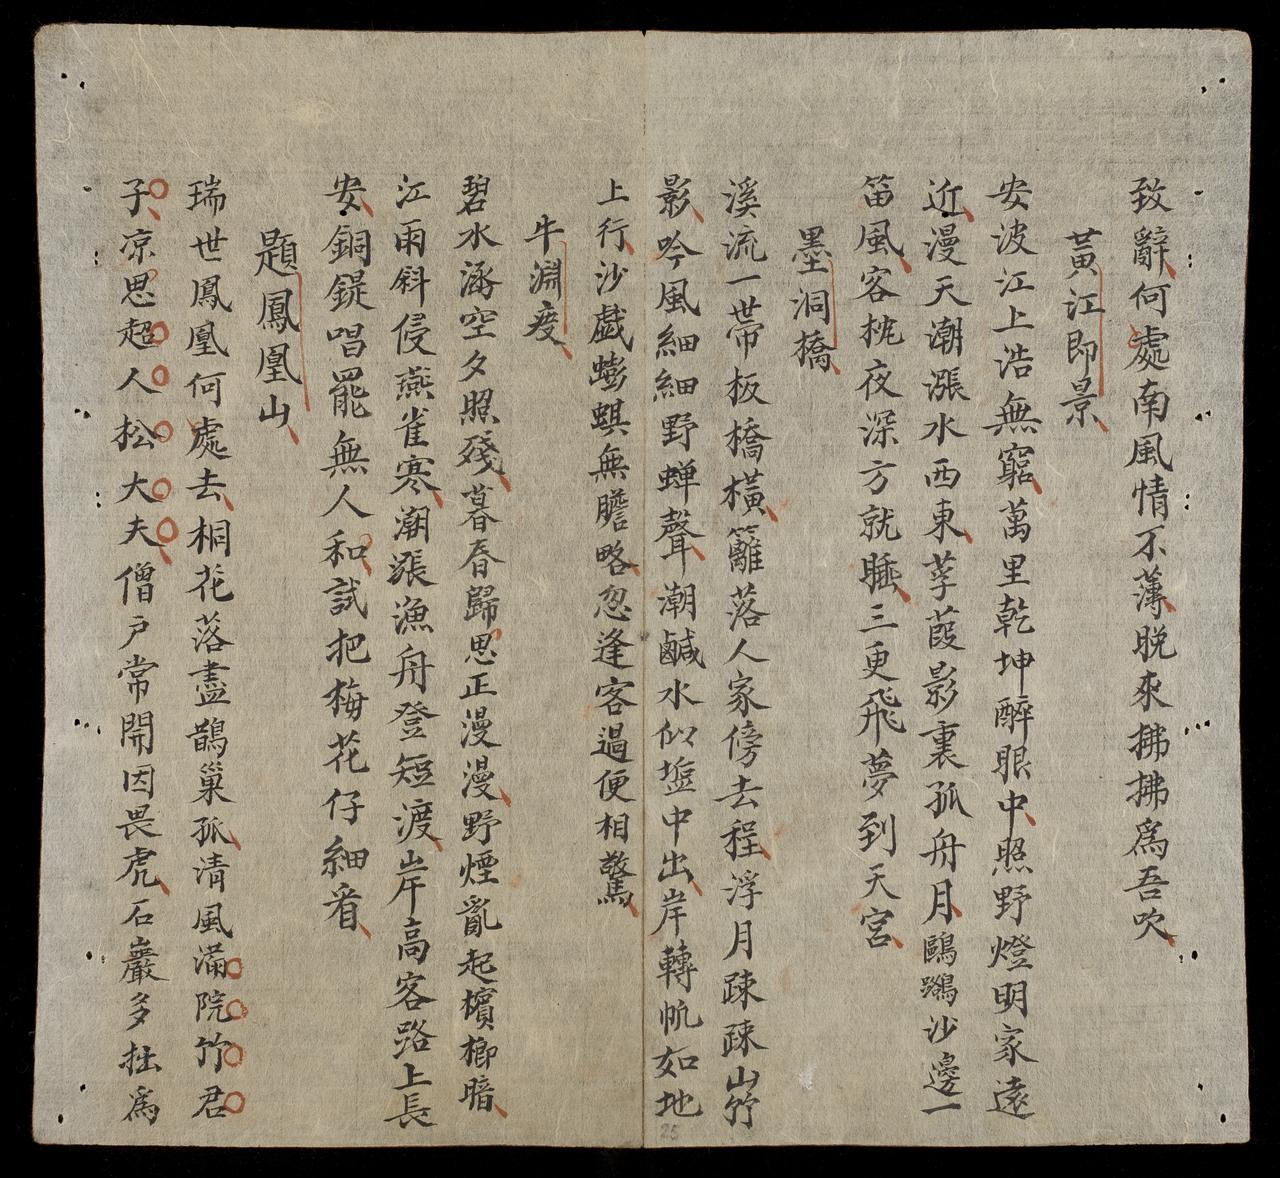 致辭何處南風情不薄晚來拂拂爲吾吹
黃江即景
安波江上浩無窮萬里乾坤醉眼中照野燈明家遠
近漫天潮漲水西東荸葭影裏孤舟月鷗鷀沙邊一
笛風客枕夜深方就睡三更飛夢到天宮
墨洞橋
溪流一帶板橋橫籬落人家傍去程浮月疎疎山竹
影吟風細細野蟬聲潮鹹水似塩中出岸轉帆如地
上行沙戲蟛蜞無膽略忽逢客過便相驚
牛淵度
碧水涵空夕照殘暮春歸思正漫漫野煙亂起檳榔暗
江雨斜侵燕雀寒潮漲漁舟登短渡岸高客路上長
安銅鍉唱罷無人和試把梅花仔細看
題鳳凰山
瑞世鳳凰何處去桐花落盡鵲巢孤清風滿院竹君
子凉思超人松大夫僧戶常開因畏虎石巖多拙爲
25